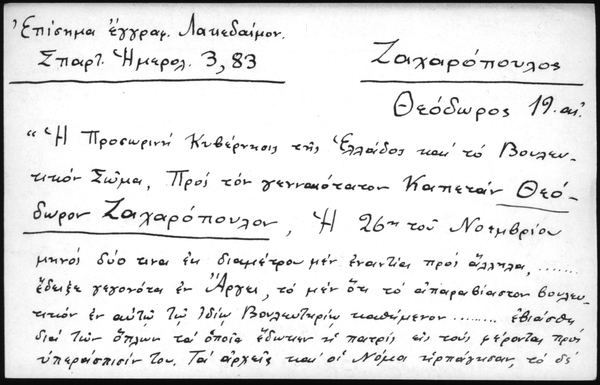 Ἐπίσημα ἔγγραφ. Λακεδαίμον.
Σπαρτ. Ἡμερολ. 3, 83
Ζαχαρόπουλος
Θεόδωρος 19. αἰ.
"Ἡ Προσωρινή Κυβέρνησις τῆς Ἑλλάδος καί τό Βουλευ-
τικόν Σῶμα, Πρός τόν γενναιότατον Καπετάν Θεό-
δωρον Ζαχαρόπουλον, Ἡ 26η τοῦ Νοεμβρίου
μηνός δύο τινα ἐκ διαμέτρου μέν ἐναντία πρός ἄλληλα, .......
ἔδειξε γεγονότα ἐν Ἄργει, τό μέν ὅτι τό ἀπαραβίαστον βουλευ-
τικόν ἐν αὐτῷ τῷ ἰδίῳ Βουλευτηρίῳ καθήμενον ........ ἐβιάσθη
διά τῶν ὅπλων τά ὁποῖα ἔδωκεν ἡ πατρίς εἰς τούς φέροντας πρός
ὑπεράσπισίν του. Τά ἀρχεῖα καί οἱ Νόμοι ἡρπάγησαν, τό δέ